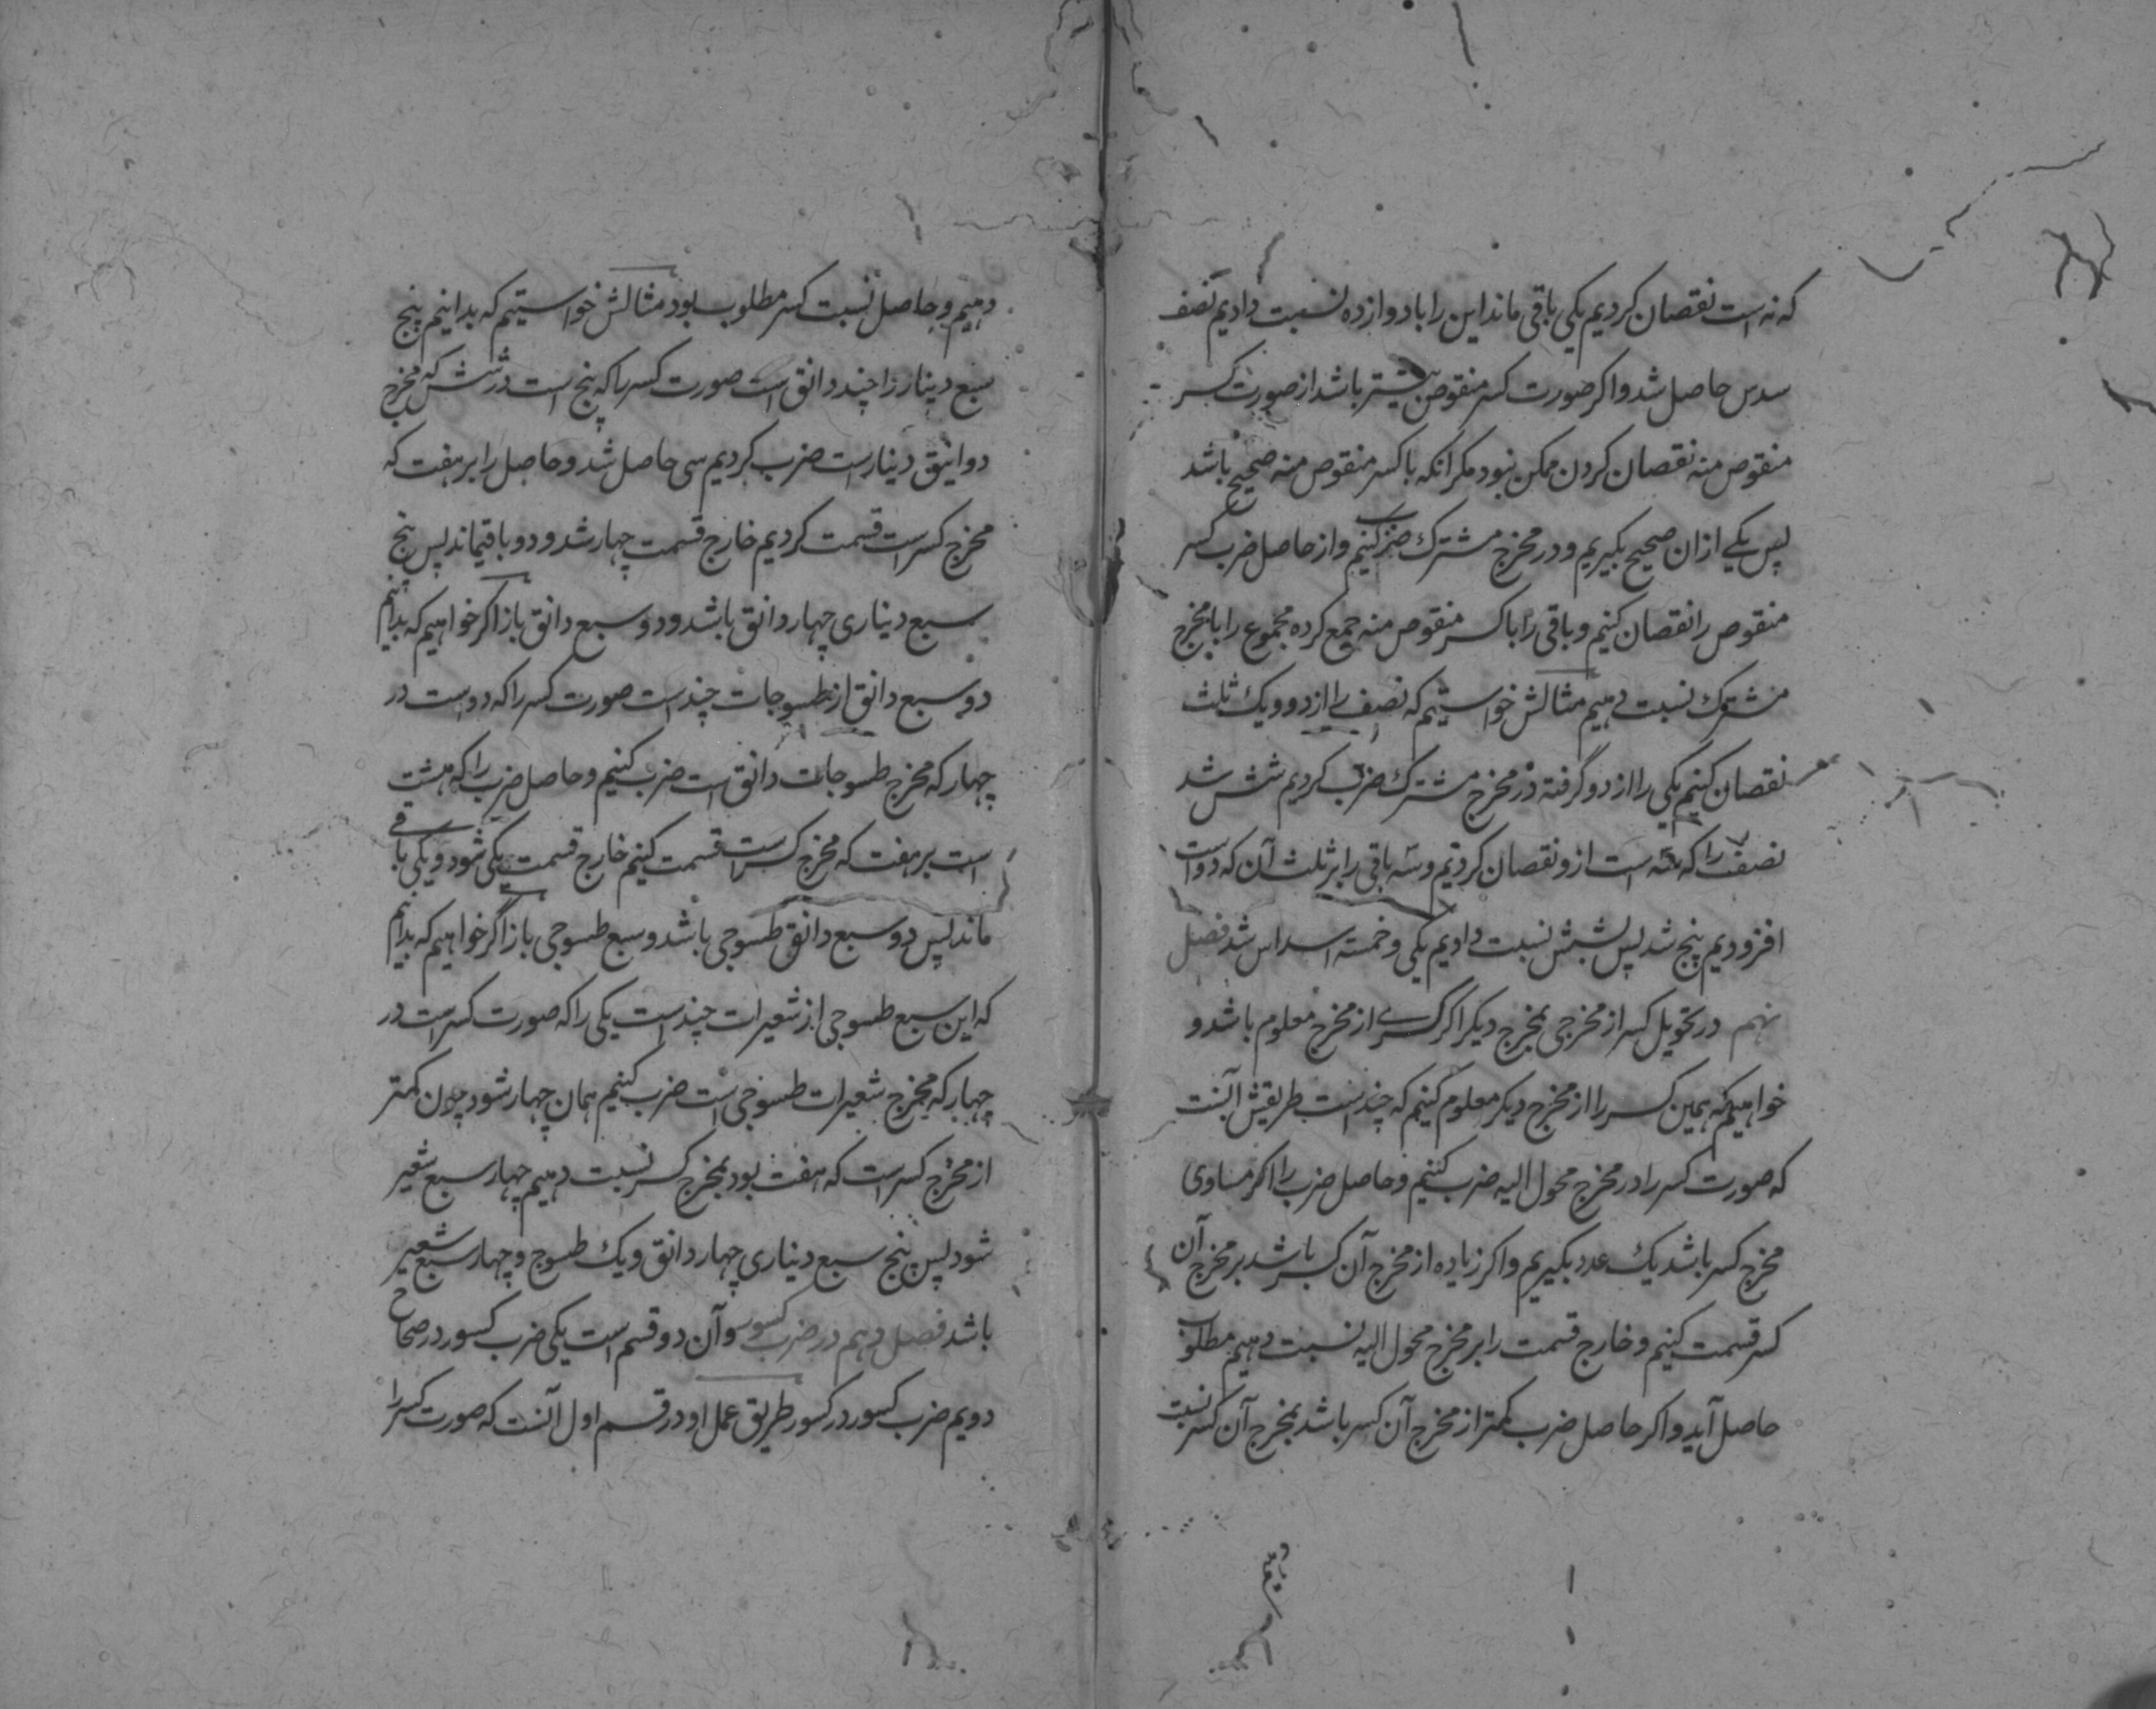 که نه است نقصان کردیم یکی باقی ماند این را با دوازده نسبت دادیم نصف
سدس حاصل شد و اکر صورت کسر منقوص بیشتر باشد از صورت کسر
منقوص منه نقصان کردن ممکن نبود مکر آنکه با کسر منقوص منه صحیح باشد
پس یکے ازان صحیح بکیریم و در مخرج مشترک ضرب کنیم و از حاصل ضرب کسر
منقوص را نقصان کنیم و باقی را با کسر منقوص منه جمع کرده مجموع را با مخرج
مشترک نسبت دهیم مثالش خواستیم که نصف را از دو و یک ثلث
نقصان کنیم یکی را از دو گرفته در مخرج مشترک ضرب کردیم شش شد
نصف را که سه است ازو نقصان کردیم و سه باقی را بر ثلث آن که دواست
افزودیم پنج شد پس بشش نسبت دادیم یکی و خمسه اسداس شد فصل
نهم در تحویل کسر از مخرجی بمخرج دیکر اکر کسرے از مخرج معلوم باشد و
خواهیم که همین کسر را از مخرج دیکر معلوم کنیم که چند است طریقش آنست
که صورت کسر را در مخرج محول الیه ضرب کنیم و حاصل ضرب را اکر مساوی
مخرج کسر باشد یک عدد بکیریم و اکر زیاده از مخرج آن کسر باشد بر مخرج آن
کسر قسمت کنیم و خارج قسمت را بر مخرج محول الیه نسبت دهیم مطلوب
حاصل آید و اکر حاصل ضرب کمتر از مخرج آن کسر باشد بمخرج آن کسر نسبت
دهیم و حاصل نسبت کسر مطلوب بود مثالش خواستیم که بدانیم پنج
سبع دینار را چند دانق است صورت کسر را که پنج است در شش که مخرج
دوانیق دینار است ضرب کردیم سی حاصل شد و حاصل را بر هفت که
مخرج کسر است قسمت کردیم خارج قسمت چهار شد و دو باقیماند پس پنج
سبع دیناری چهار دانق باشد و دو سبع دانق باز اکر خواهیم که بدانیم
دو سبع دانق از طسوجات چند است صورت کسر را که دو است در
چهار که مخرج طسوجات دانق است ضرب کنیم و حاصل ضرب را که هشت
است بر هفت که مخرج کسر است قسمت کنیم خارج قسمت یکی شود و یکی باقی
ماند پس دو سبع دانق طسوجی باشد و سبع طسوجی باز اگر خواهیم که بدانیم
که این سبع طسوجی از شعیرات چند است یکی را که صورت کسر است در
چهار که مخرج شعیرات طسوجی است ضرب کنیم همان چهار شود چون کمتر
از مخرج کسر است که هفت بود بمخرج کسر نسبت دهیم چهار سبع شعیر
شود پس پنج سبع دیناری چهار دانق و یک طسوج و چهار سبع شعیر
باشد فصل دهم در ضرب کسور و آن دو قسم است یکی ضرب کسور در صحاح
دویم ضرب کسور در کسور طریق عمل او در قسم اول آنست که صورت کسر را